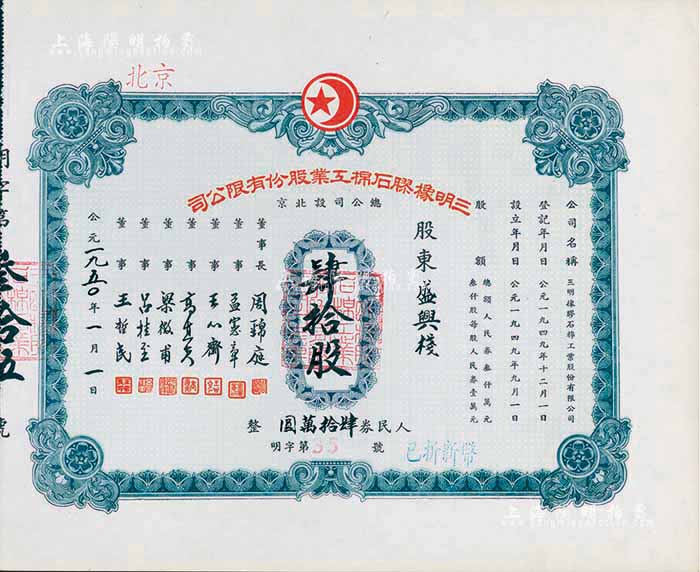 上海陽明拍賣
北京
三明橡膠石棉工業股份有限公司
總公司設北京
公司名稱 三明橡膠石棉工業股份有限公司
登記年月日 公元一九四九年十二月一日
設立年月日 公元一九四九年九月一日
股額 總額人民券叁仟萬元
叁仟股每股人民券壹萬元
股東益興棧
肆拾股
人民券肆拾萬圓整
明字第35號
已折新幣
董事長 周錦庭
董事 孟憲章
董事 王心齋
董事
董事 梁徽甫
董事 呂桂至
董事 王哲民
公元一九五〇年一月一日
明字第
叁拾五
號
上海陽明拍賣